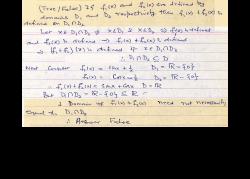 (True/False) If f₁(x) and f₂(x) are defined by
domains D₁ and D₂ respectively then f₁(x) + f₂(x) is
defined on D₁∩D₂
Let x∈D₁∩D₂ ⇒ x∈D₁ & x∈D₂ ⇒ f₁(x) is defined
and f₂(x) is defined → f₁(x)+f₂(x) is defined
⇒ (f₁+f₂)(x) is defined if x∈D₁∩D₂
∴ D₁∩D₂ ⊆ D
Next Consider f₁(x) = sinx + 1/x D₁ = ℝ-{0}
f₂(x) = Cosx - 1/x D₂ = ℝ-{0}
∴ f₁(x)+f₂(x) = sinx + cosx D = ℝ
But D₁∩D₂ = ℝ-{0} ⊆ ℝ
∴ Domain of f₁(x)+f₂(x) need not necessarily
equal to D₁∩D₂
∴ Answer False